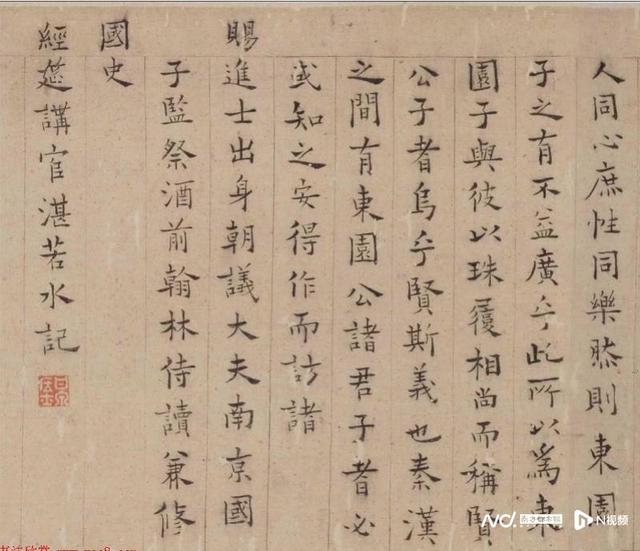 人同心庶性同樂然則東園
子之有不益廣乎此所以為東
園子與彼以珠履相尚而稱賢
公子者烏乎賢斯義也秦漢
之間有東園公諸君子者必
或知之安得作而訪諸
賜
進士出身朝議大夫南京國
子監祭酒前翰林侍讀兼修
國史
經筵講官湛若水記
N视频